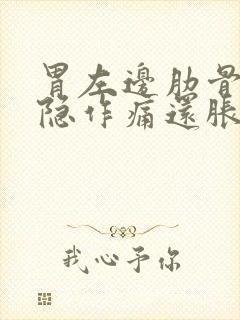 胃左邊肋骨
隐作痛還脹
我心予你